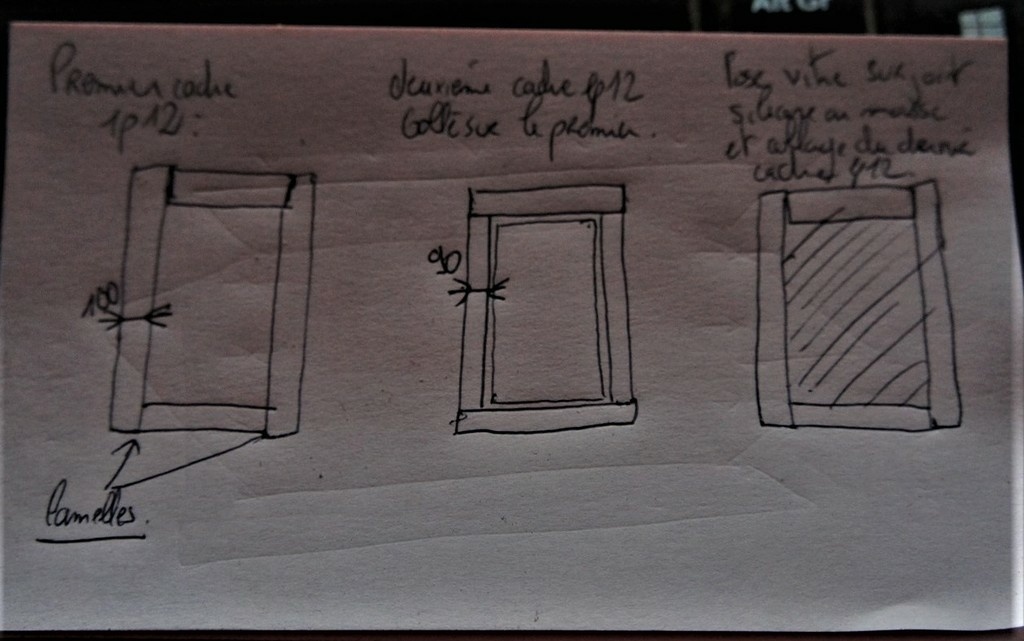 Alt Gr
Premier cadre
ep 12 :
deuxième cadre ep12
collé sur le premier.
Pose vitre sur joint
silicone ou mastic
et collage du dernier
cadre ep12.
100
90
lamelles.